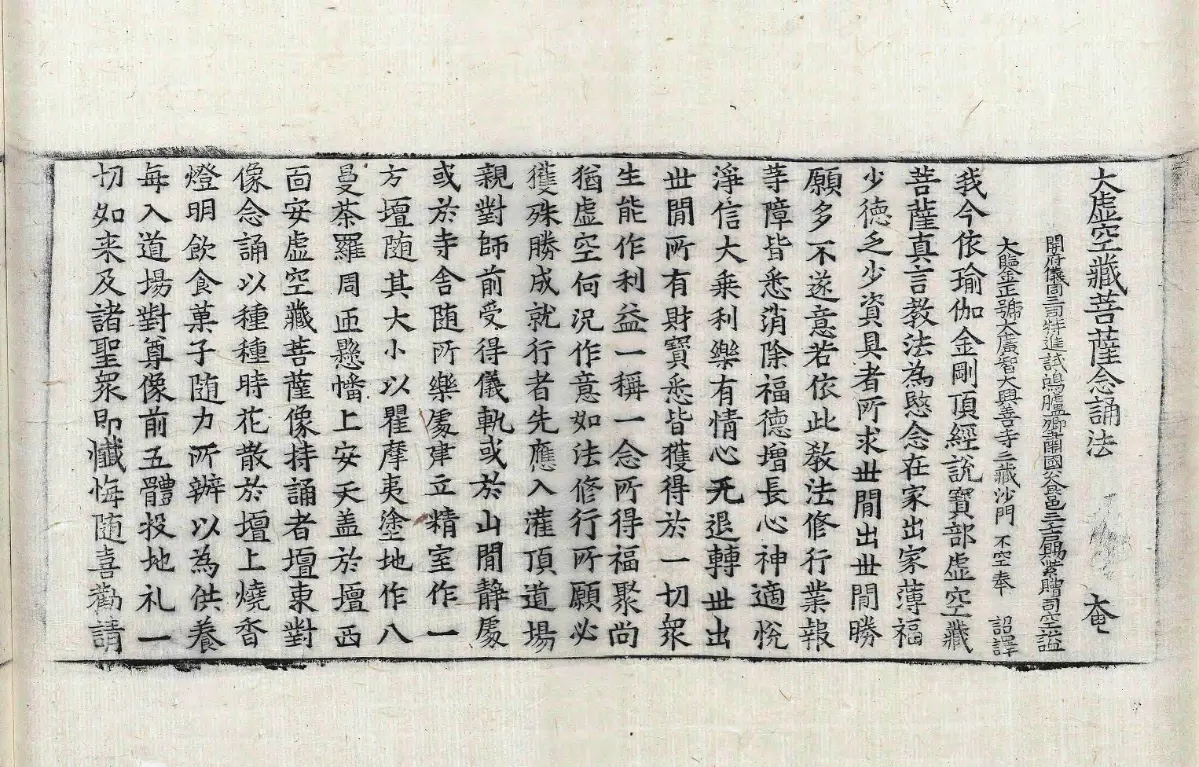 大虛空藏菩薩念誦法 奄
開府儀同三司特進試鴻臚卿肅國公食邑三千戶賜紫贈司空謚
大鑒正號大廣智大興善寺三藏沙門 不空奉 詔譯
我今依瑜伽金剛頂經說寶部虛空藏
菩薩真言教法為愍念在家出家薄福
少德乏少資具者所求世閒出世閒勝
願多不遂意若依此教法修行業報
等障皆悉消除福德增長心神適悅
淨信大乘利樂有情心无退轉世出
世閒所有財寶悉皆獲得於一切眾
生能作利益一稱一念所得福聚尚
猶虛空何況作意如法修行所願必
獲殊勝成就行者先應入灌頂道場
親對師前受得儀軌或於山閒靜處
或於寺舍随所樂處建立精室作一
方壇随其大小以瞿摩夷塗地作八
曼茶羅周匝懸幡上安天盖於壇西
面安虛空藏菩薩像持誦者壇東對
像念誦以種種時花散於壇上燒香
燈明飲食菓子随力所辦以為供養
每入道場對尊像前五體投地礼一
切如来及諸聖眾即懺悔随喜勸請